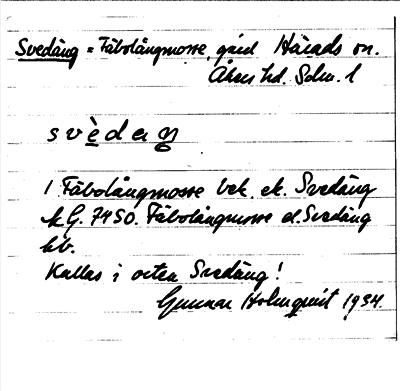 Svedäng = Fäbolångmosse, gård Härads sn.
Åkers hd. Sdm. l
svèdeŋ
1 Fäbolångmosse bek. ek. Svedäng
k G. 7450. Fäbolångmosse el. Svedäng
hb.
Kallas i orten Svedäng!
Gunnar Holmquist 1934.